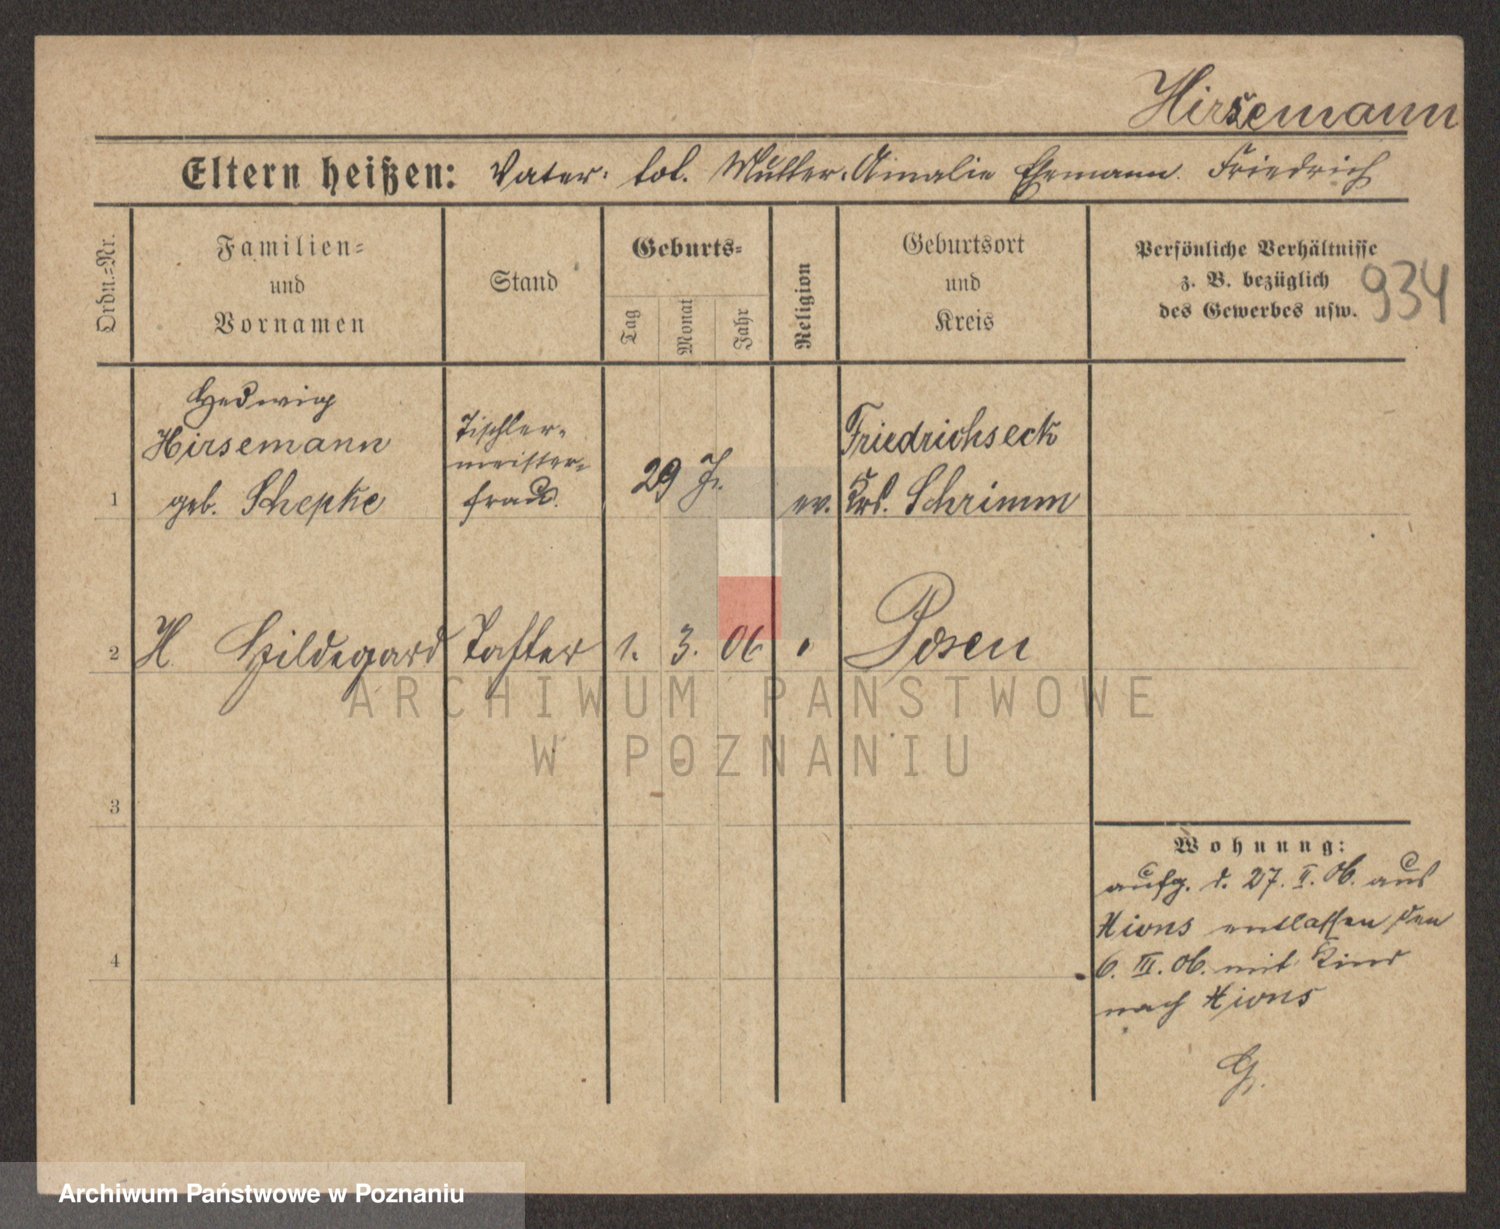 Hirsemann
Eltern heißen: Vater: tot. Mutter: Amalie Ehemann. Friedrich
Ordn.=Nr.
Familien=
und
Vornamen
Stand
Geburts=
Tag
Monat
Jahr
Religion
Geburtsort
und
Kreis
Persönliche Verhältnisse
z. B. bezüglich
des Gewerbes usw.
934
1
Hedwig
Hirsemann
geb. Schepke
Tischler-
meister-
frau.
29 J.
ev.
Friedrichseck
Krs. Schrimm
2
H. Hildegard
Tochter
1.
3.
06
"
Posen
3
4
Wohnung:
aufg. d. 27. II. 06. aus
Xions entlassen den
6. III. 06. mit Kind
nach Xions
G.
ARCHIWUM PAŃSTWOWE
W POZNANIU
Archiwum Państwowe w Poznaniu